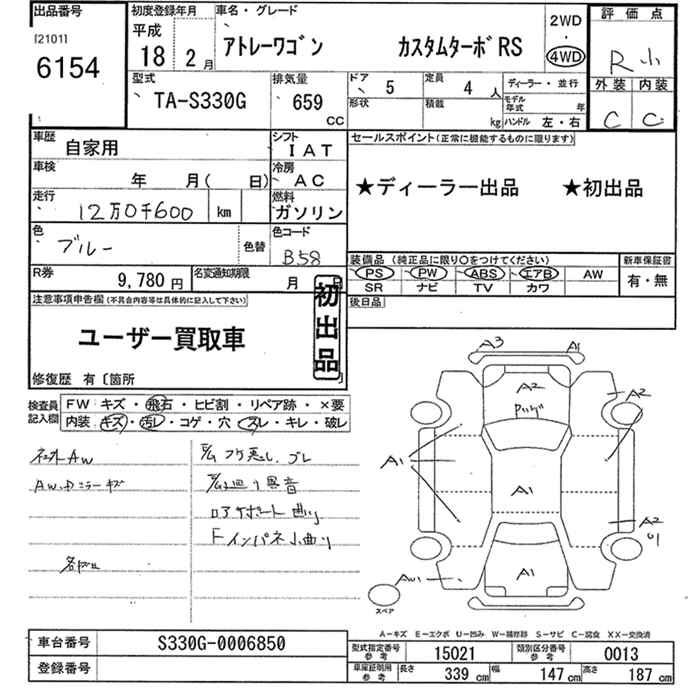 出品番号
[2101]
6154
初度登録年月
平成
18年 2月
車名・グレード
アトレーワゴン カスタムターボRS
2WD
・
4WD
評価点
R 小
外装 内装
C C
型式
TA-S330G
排気量
659
CC
ドア
5
形状
定員
4人
積載
kg
ディーラー・並行
モデル年式 年
ハンドル 左・右
車歴
自家用
シフト
IAT
車検
年 月( 日)
冷房
AC
走行
12万0千600 km
燃料
ガソリン
色
ブルー
色替
色コード
B58
R券
9,780円
名変通知期限
月 日
セールスポイント(正常に機能するものに限ります)
★ディーラー出品 ★初出品
装備品 (純正品に限り○をつけてください)
PS PW ABS エアB AW
SR ナビ TV カワ
新車保証書
有・無
後日品
注意事項申告欄(不具合内容等は具体的に記入して下さい)
ユーザー買取車
初出品
修復歴 有〔箇所
検査員記入欄
FW キズ・飛石・ヒビ割・リペア跡・×要
内装 キズ・汚レ・コゲ・穴・スレ・キレ・破レ
社外AW
AW.Dミラーキズ
異音
ロアサポート曲り
Fインパネ小曲り
A3
A1
A2
A2
A1
A1
A2
U1
AW1
A1
スペア
A-キズ E-エクボ U-凹み W-補修跡 S-サビ C-腐食 XX-交換済
車台番号
S330G-0006850
登録番号
型式指定番号 参考
15021
類別区分番号 参考
0013
車庫証明用 参考
長さ 339 cm 幅 147 cm 高さ 187 cm